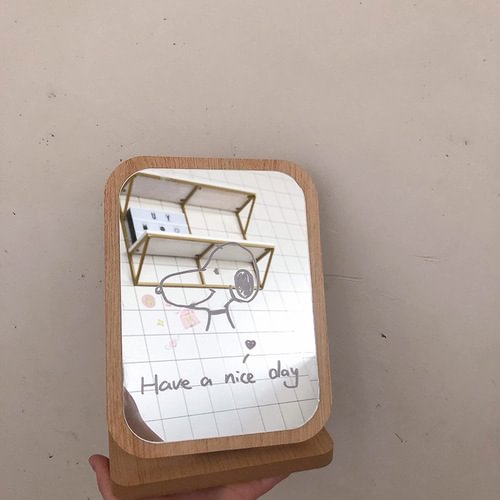 U Y
Have a nice day